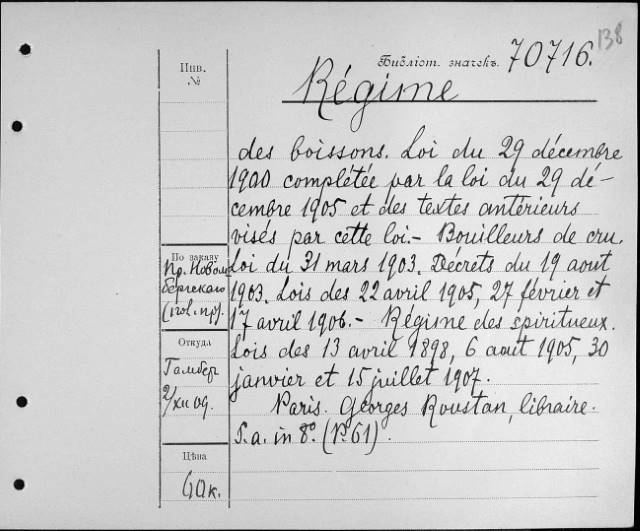 138
Библіот. значекъ. 70716.
Инв.
№
Régime
des boissons. Loi du 29 décembre
1900 complétée par la loi du 29 dé-
cembre 1905 et des textes antérieurs
visés par cette loi.- Bouilleurs de cru.
Loi du 31 mars 1903. Décrets du 19 aout
1903. Lois des 22 avril 1905, 27 février et
17 avril 1906.- Régime des spiritueux.
Lois des 13 avril 1898, 6 aout 1905, 30
janvier et 15 juillet 1907.
Paris. Georges Roustan, libraire.
S.a. in 8º. (P. 61).
По заказу
Пр.
Откуда
Гамбер
2/XII 09.
Цѣна
60 к.